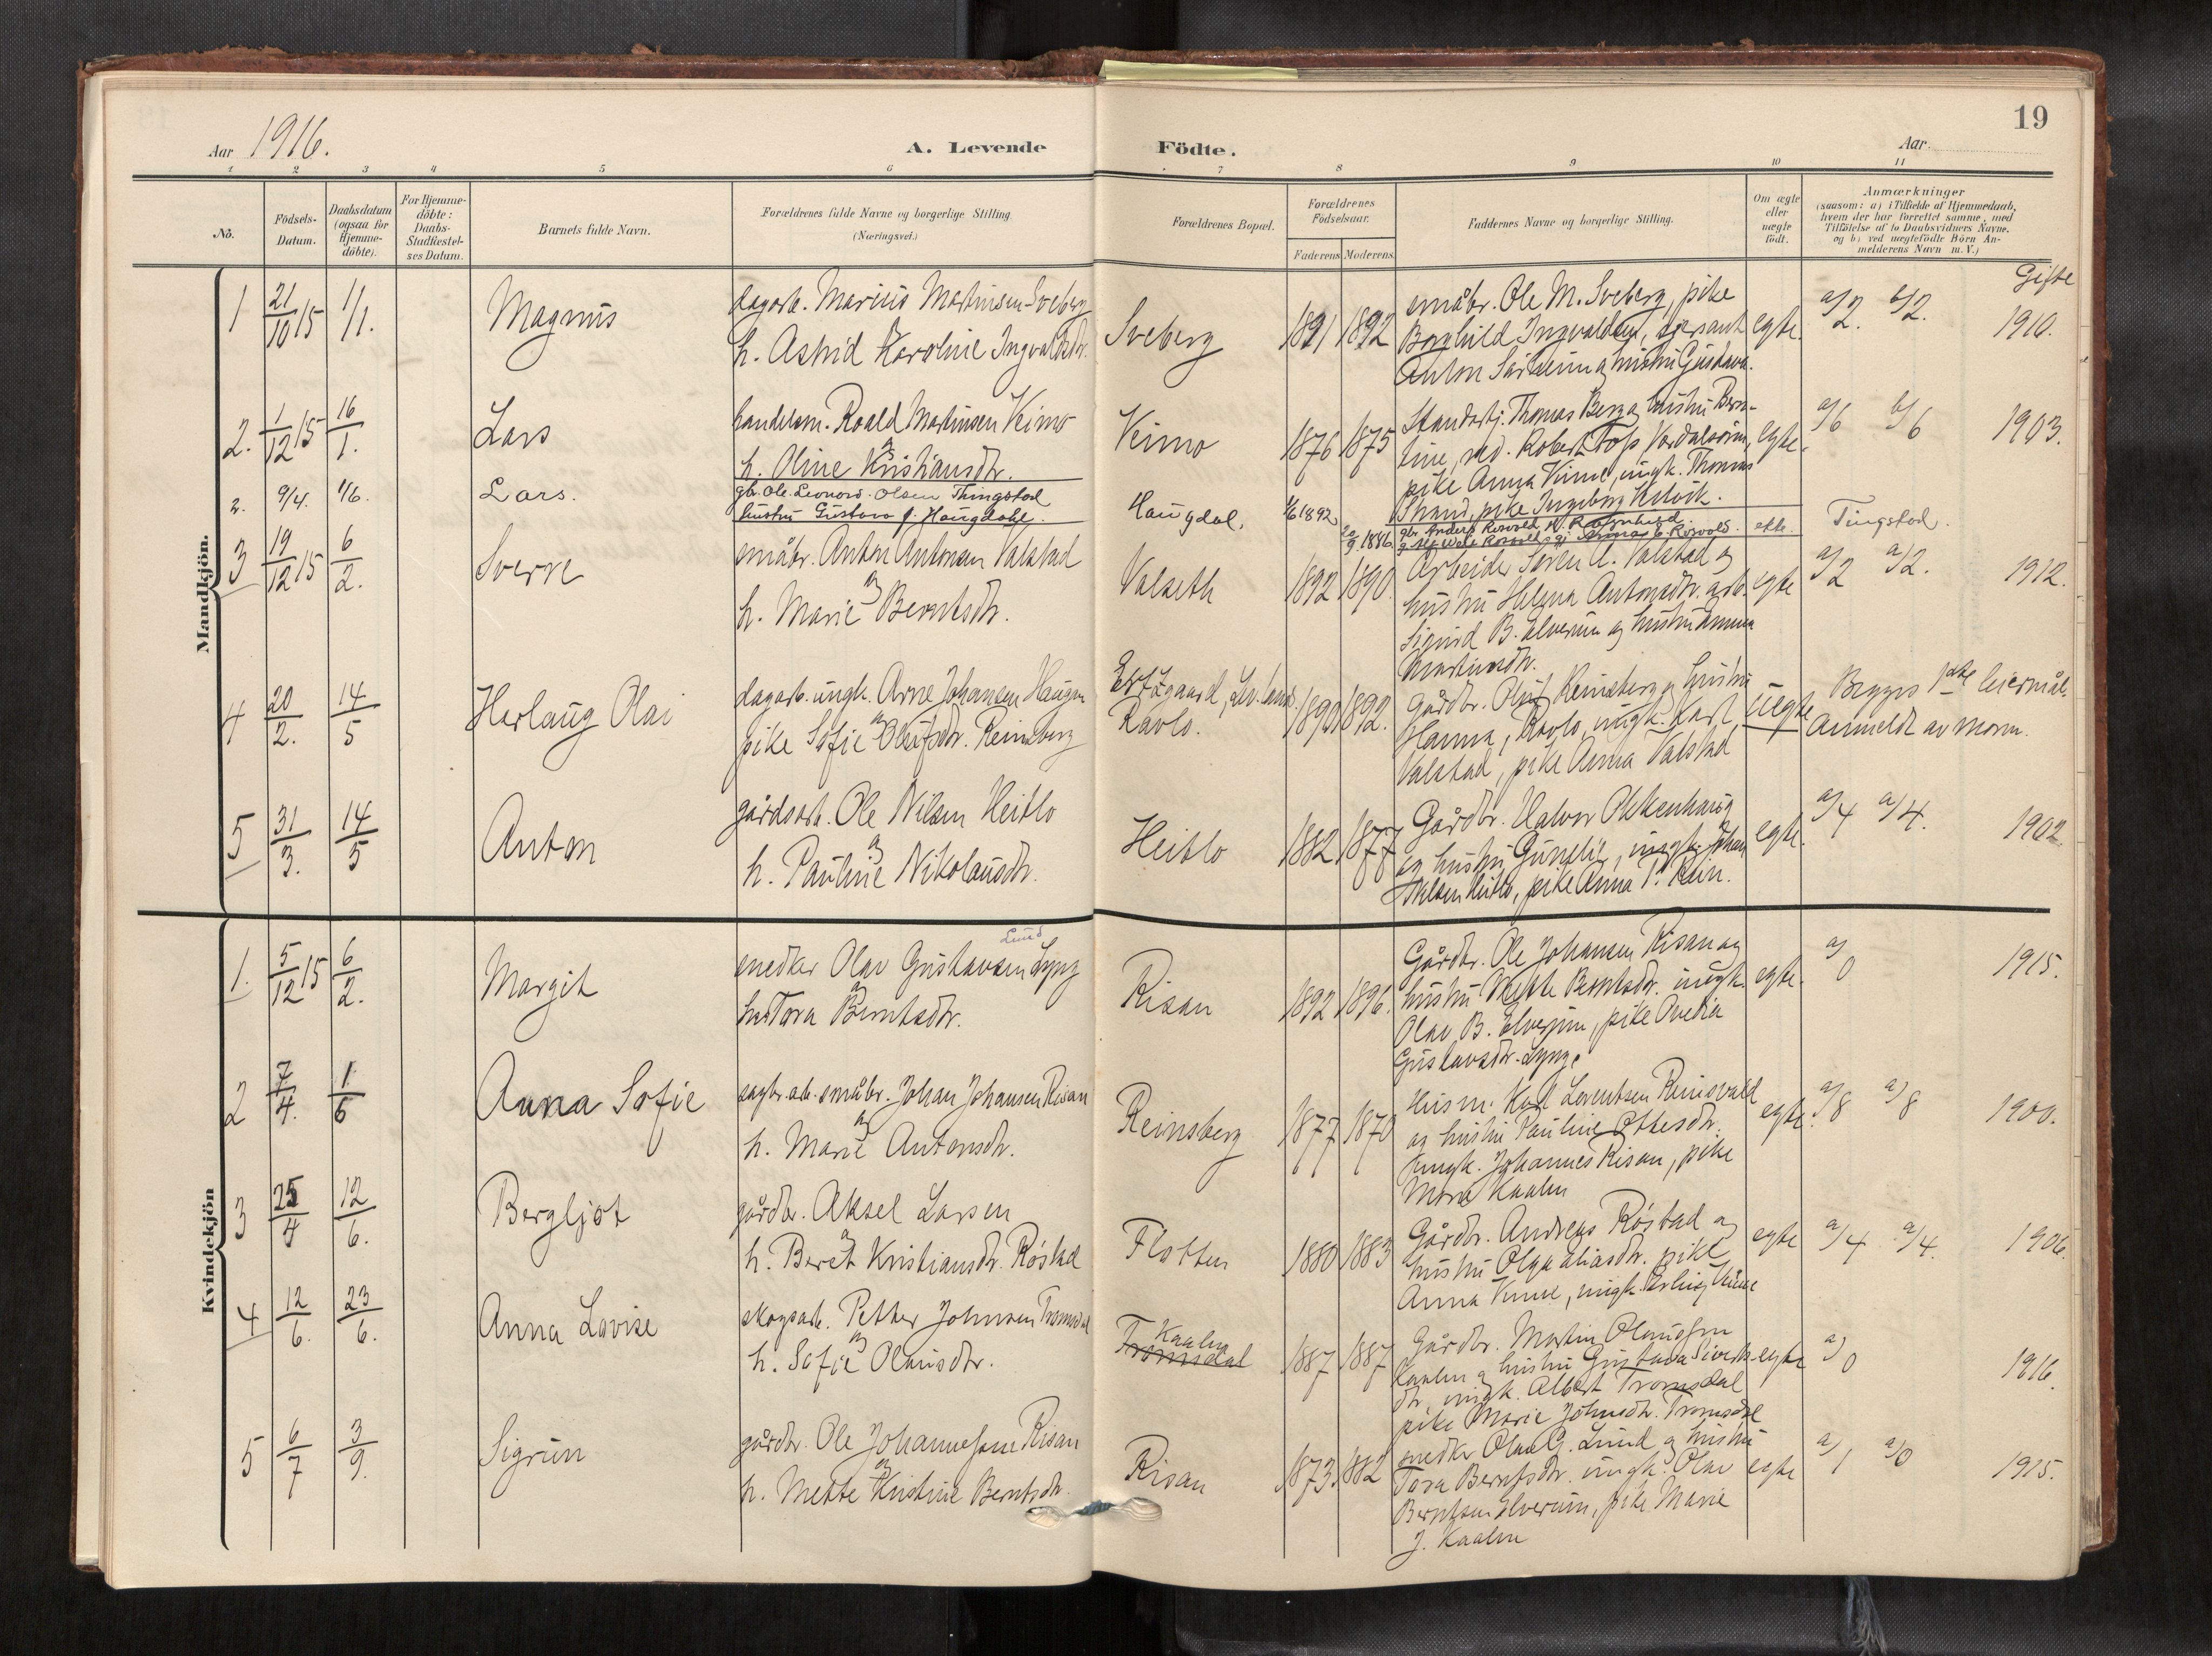 19
Aar 1916.
A. Levende Födte.
Aar
1 2 3 4 5 6 7 8 9 10 11
No.
Födsels-Datum.
Daabsdatum (ogsaa for Hjemme-döbte).
For Hjemme-döbte: Daabs-Stadfæstel-ses Datum.
Barnets fulde Navn.
Forældrenes fulde Navne og borgerlige Stilling.
(Næringsvei.)
Forældrenes Bopæl.
Forældrenes Födselsaar.
Faderens Moderens
Faddernes Navne og borgerlige Stilling.
Om ægte eller uægte födt.
Anmærkninger
(saasom: a) i Tilfælde af Hjemmedaab, hvem der har forrettet samme, med Tilföielse af to Daabsvidners Navne, og b) ved uægtefödte Börn An-melderens Navn m. V.)
Gifte
Mandkjön.
1 21/10 15 1/1. Magnus
dagarb. Marius Martinsen Sveberg
og
h. Astrid Karoline Ingvaldsdtr.
Sveberg 1891 1892
småbr. Ole M. Sveberg, pike
Borghild Ingvaldsen,
Anton og hustru Gustava.
egte. a/2. b/2. 1910.
2. 1/12 15 16/1. Lars
handelsm. Roald Martinsen Veimo
og
h. Oline Kristiansdtr.
Veimo 1876 1875
Thomas Berg og hustru Bern-
tine, red. Robert Foss Verdalsøren,
pike Anna Vinne, ungk. Thomas
Strand, pike Ingeborg
egte. a/6 b/6 1903.
2. 9/4. 1/6. Lars.
gbr. Ole Leonard Olsen Tingstad
hustru Gustava f. Haugdahl.
Haugdal. 1/6 1892 20/9 1886.
gbr. Anders Rosvold
ekte. Tingstad.
3 19/12 15 6/2. Sverre
småbr. Anton Antonsen Valstad
og
h. Marie Berntsdtr.
Valseth 1892 1890.
Arbeider Søren A. Valstad og
hustru Helga Antonsdtr. arb.
Sigurd B. Elverum og hustru Emma
Martinsdtr.
egte a/2 a/2. 1912.
4 20/2. 14/5 Herlaug Olai
dagarb. ungk. Arne Johansen Haugan
og
pike Sofie Olufsdtr. Reinsberg
Ravlo. 1892.
Gårdbr. Oluf Reinsberg og hustru
Hanna, Ravlo, ungk. Karl
Valstad, pike Anna Valstad
uegte
Begges 1ste leiermål.
Anmeldt av morm.
5 31/3. 14/5 Anton
gårdsarb. Ole Nilsen Heitlo
og
h. Pauline Nikolausdtr.
Heitlo 1882 1877
Gårdbr. Halvor Okkenhaug
og hustru Gunelie, ungk. Johan
Nilsen Heitlo, pike Anna P. Rein.
egte. a/4 a/4. 1902
Kvindekjön
1. 5/12 15 6/2. Margit
Lund
snedker Olav Gustavsen Lyng
og
hu. Tora Berntsdtr.
Risan 1892 1896.
Gårdbr. Ole Johansen Risan og
hustru Mette Berntsdtr. ungk.
Olav B. Elverum, pike Ovedia
Gustavsdtr. Lyng.
egte. a/0 1915.
2 7/4. 1/6 Anna Sofie
sagbr. arb. småbr. Johan Johansen Risan
og
h. Marie Antonsdtr.
Reinsberg 1877 1870
Husm. Karl Lorentsen Reinsvald
og hustru Pauline Ottesdtr.
ungk. Johannes Risan, pike
Marie Kaalen
egte. a/8 a/8 1900.
3 25/4 12/6. Bergljot
gårdbr. Aksel Larsen
og
h. Beret Kristiansdtr. Röstad
Flotten 1880 1883
Gårdbr. Andreas Röstad og
hustru Olga Eliasdtr. pike
Anna Vinne, ungk. Erling Vinne
egte a/4 a/4. 1906.
4 12/6. 23/6. Anna Lovise
skogsarb. Petter Johnsen Tromsdal
og
h. Sofie Olausdtr.
Kaalen
Tromsdal 1887 1887
Gårdbr. Martin Olaussen
Kaalen og hustru Gustava Siverts-
dtr, ungk. Albert Tromsdal
pike Marie Johnsdtr. Tromsdal
egte a/0 1916.
5 6/7 3/9. Sigrun
gårdbr. Ole Johannessen Risan
og
h. Mette Kristine Berntsdtr.
Risan 1873. 1882
snedker Olav G. Lund og hustru
Tora Berntsdtr. ungk. Olav
Berntsen Elverum, pike Marie
J. Kaalen
egte a/1 a/0 1915.